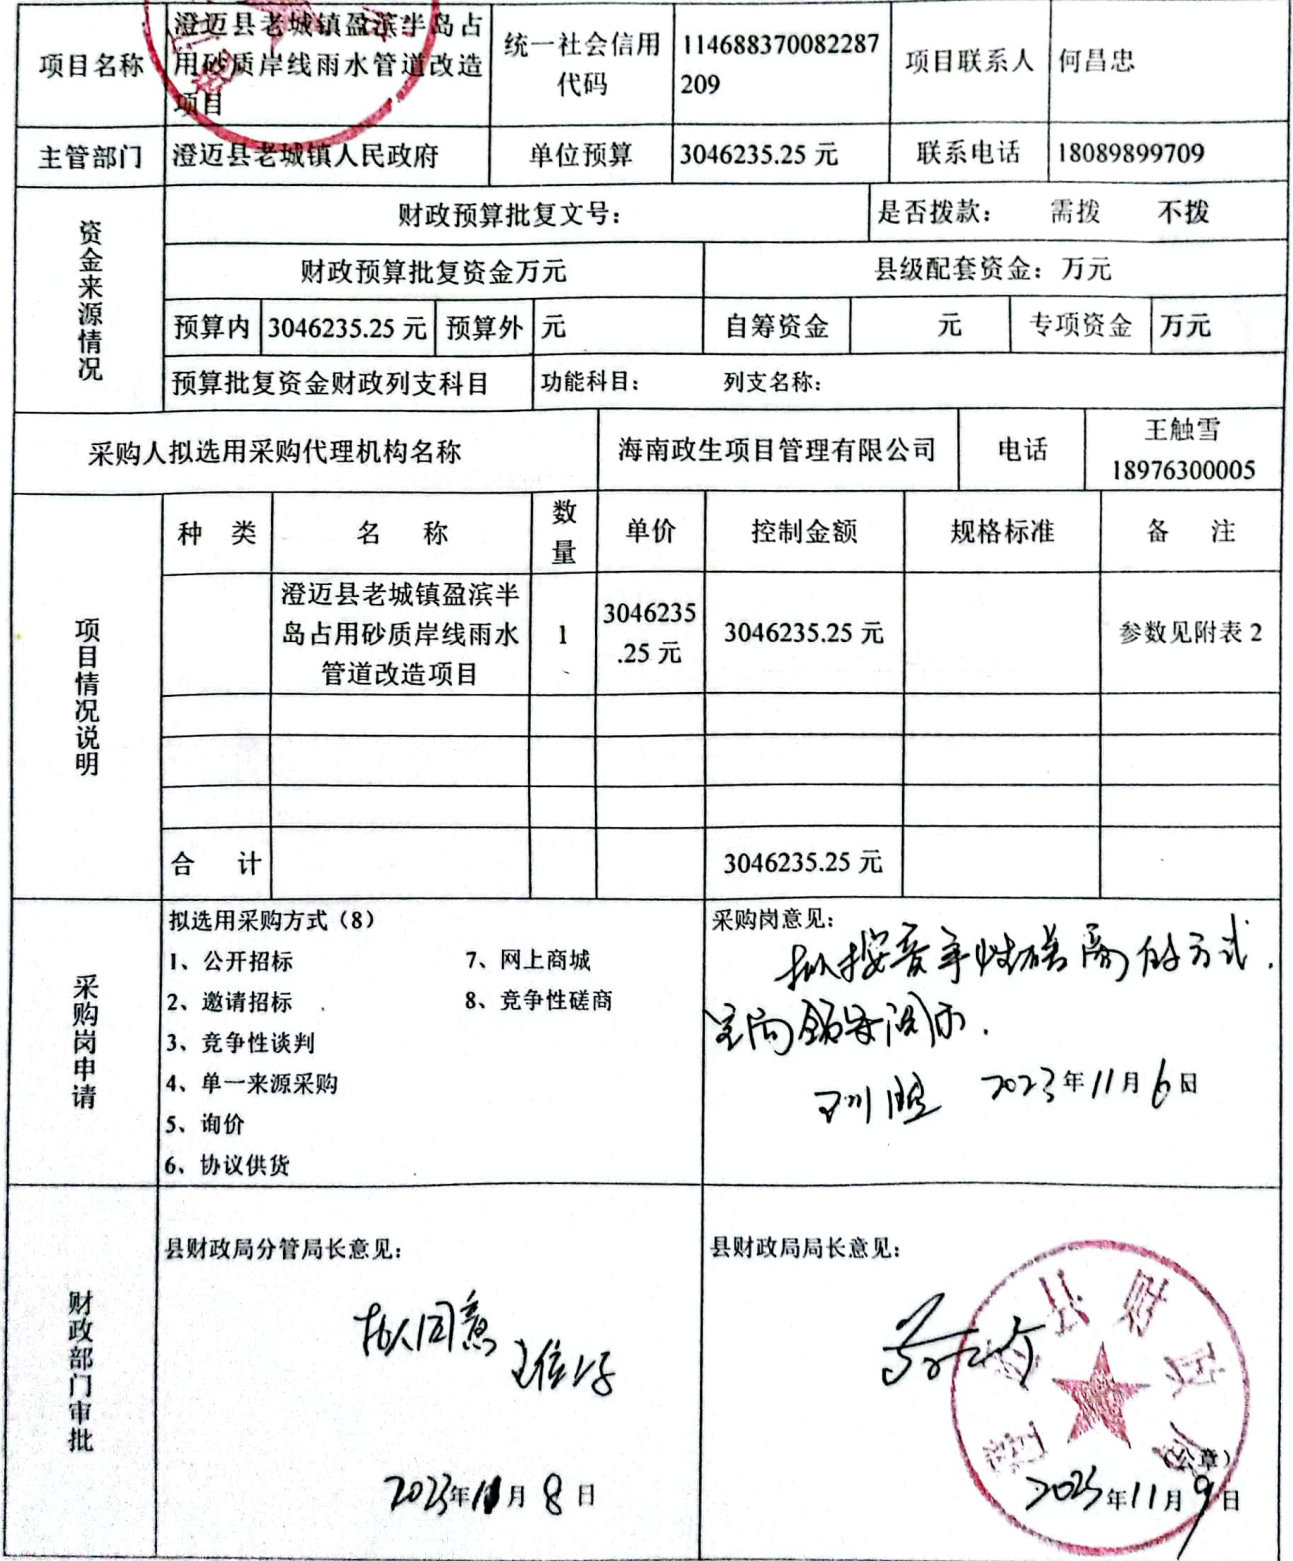 项目名称
澄迈县老城镇盈滨半岛占
用砂质岸线雨水管道改造
项目
统一社会信用
代码
114688370082287
209
项目联系人
何昌忠
主管部门
澄迈县老城镇人民政府
单位预算
3046235.25 元
联系电话
18089899709
资金来源情况
财政预算批复文号：
是否拨款： 需拨 不拨
财政预算批复资金万元
县级配套资金：万元
预算内
3046235.25 元
预算外
元
自筹资金
元
专项资金
万元
预算批复资金财政列支科目
功能科目： 列支名称：
采购人拟选用采购代理机构名称
海南政生项目管理有限公司
电话
王触雪
18976300005
项目情况说明
种 类
名 称
数
量
单价
控制金额
规格标准
备 注
澄迈县老城镇盈滨半
岛占用砂质岸线雨水
管道改造项目
1
3046235
.25 元
3046235.25 元
参数见附表 2
合 计
3046235.25 元
采购岗申请
拟选用采购方式（8）
1、公开招标
2、邀请招标
3、竞争性谈判
4、单一来源采购
5、询价
6、协议供货
7、网上商城
8、竞争性磋商
采购岗意见：
拟按竞争性磋商的方式.
领导
2023年11月6日
财政部门审批
县财政局分管局长意见：
拟同意
2023年11月8日
县财政局局长意见：
县财政局
（公章）
2023年11月9日